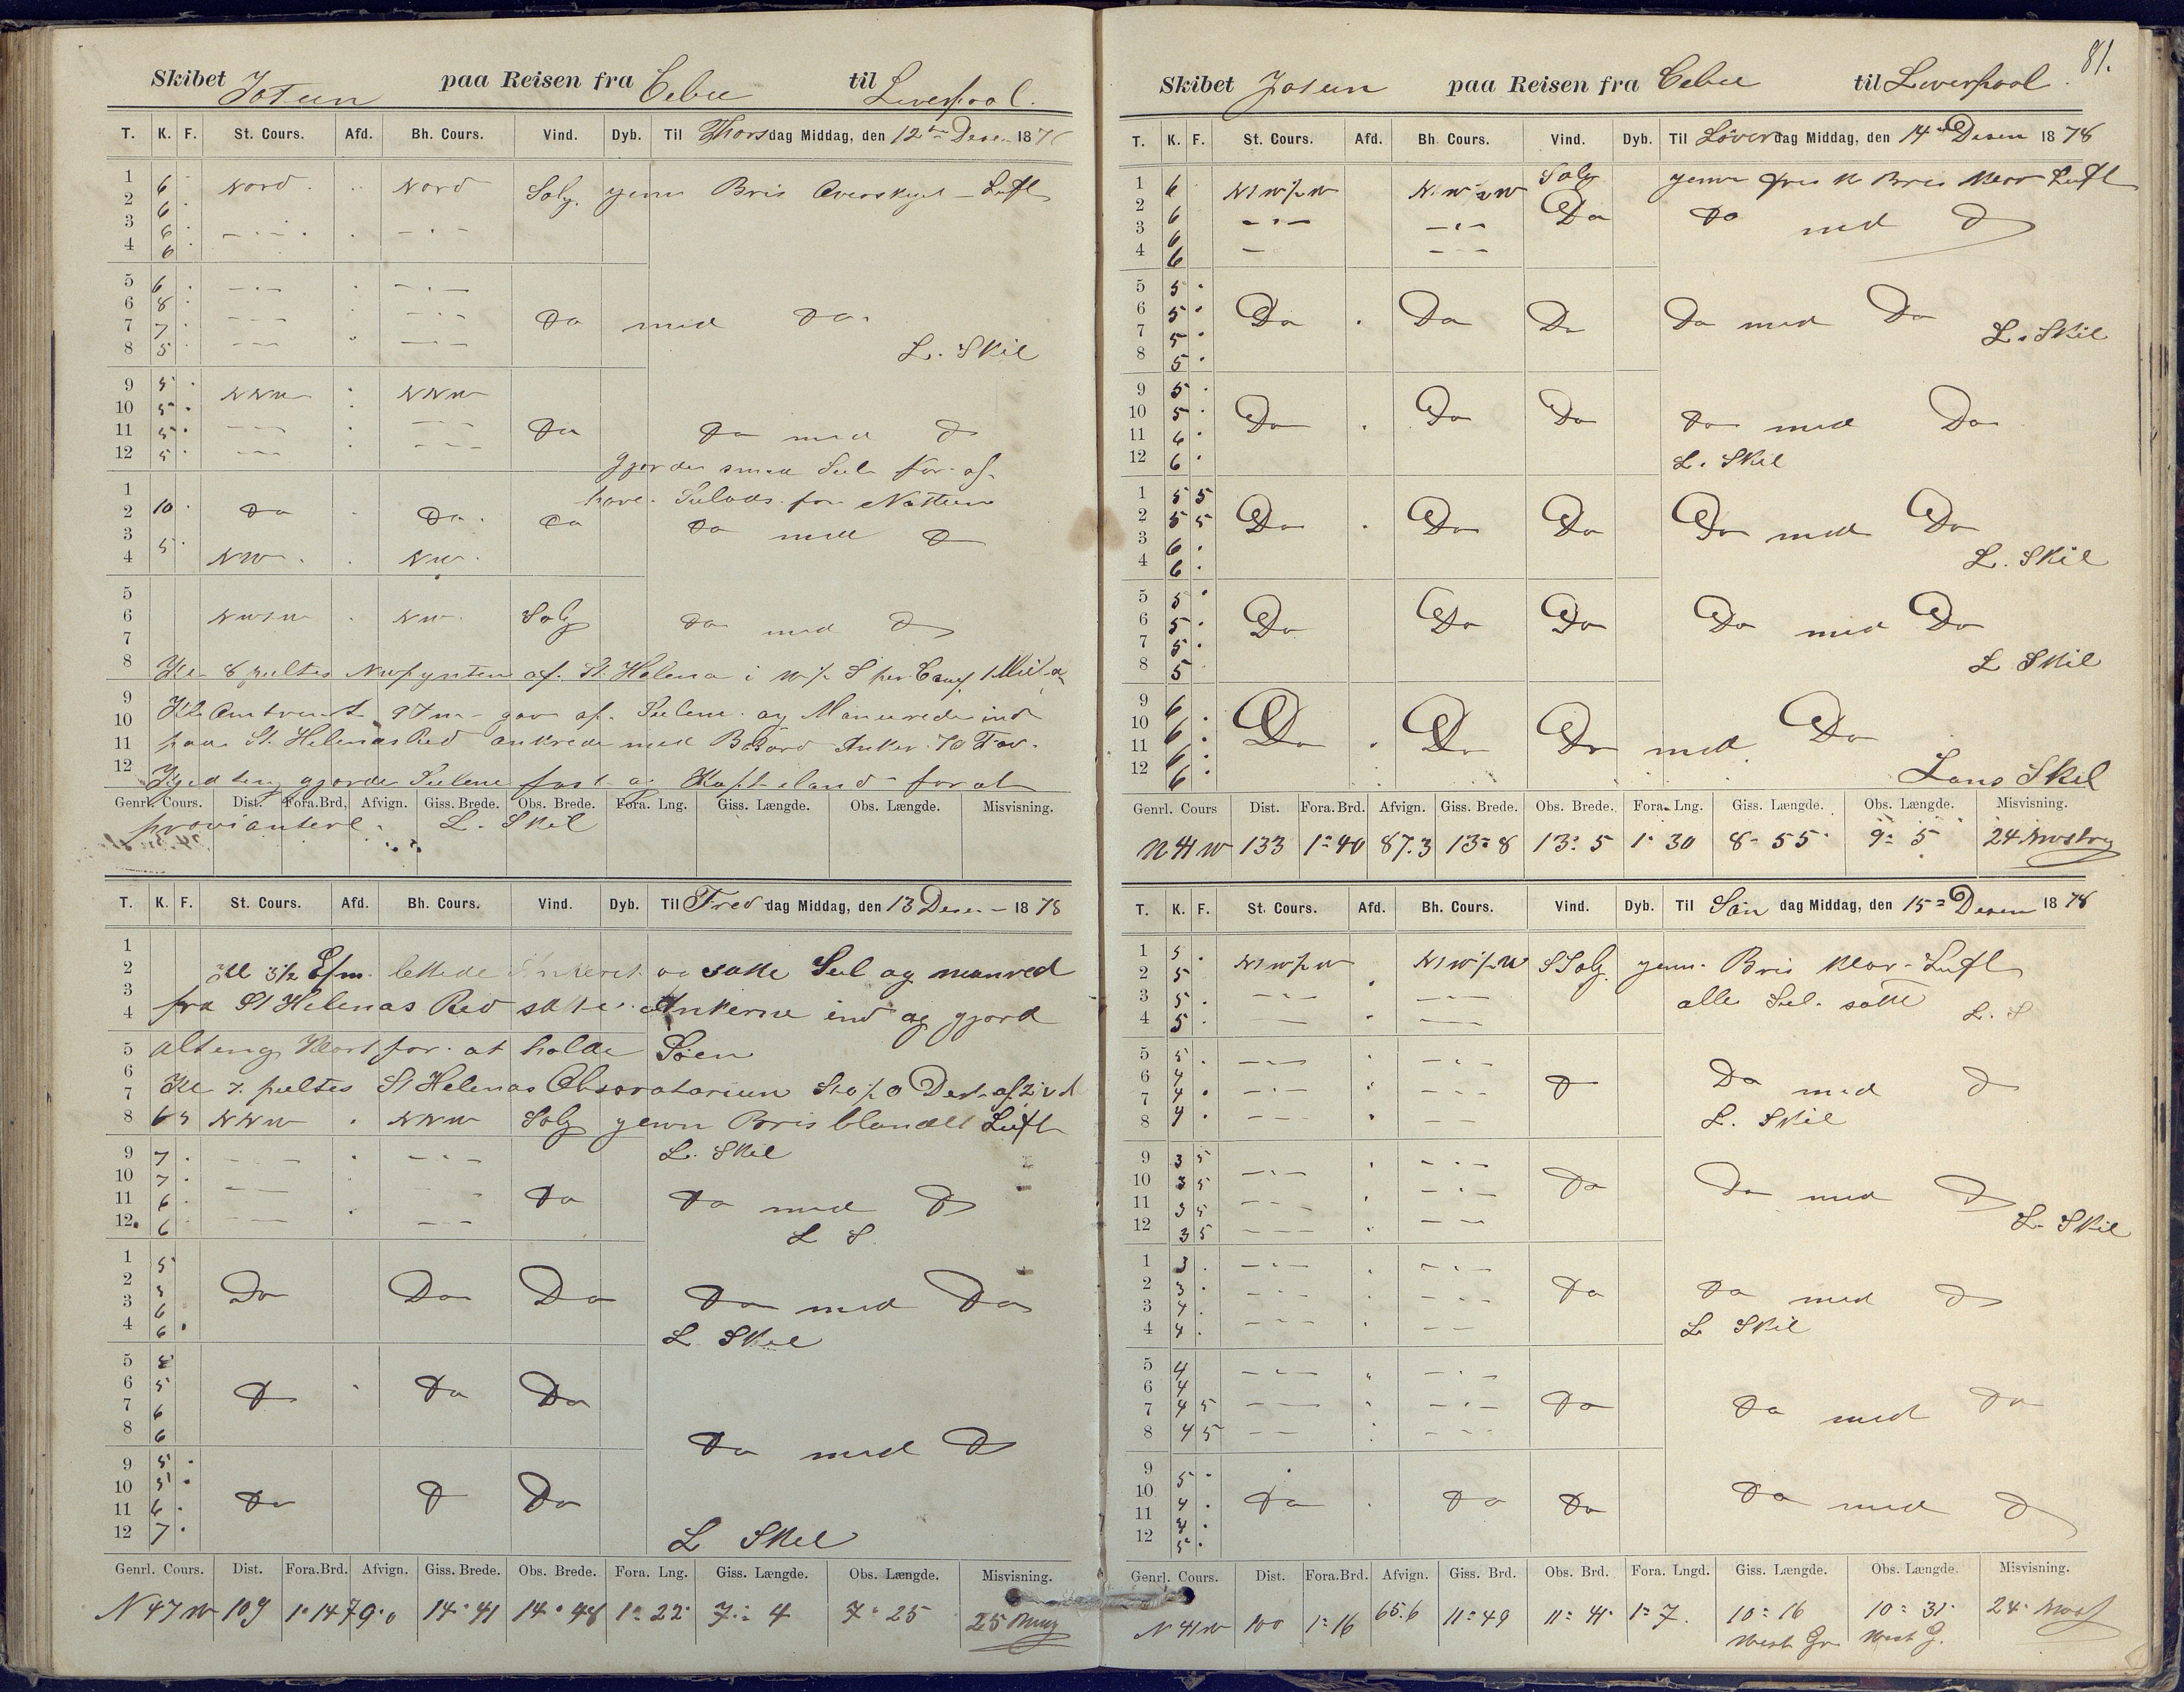 Skibet Jotun paa Reisen fra Cebu til Liverpool.
T. K. F. St. Cours. Afd. Bh. Cours. Vind. Dyb. Til Thorsdag Middag, den 12te Desem 187
1 6 Nord Nord Solg. jevn Bris Overskyet Luft
2 6
3 6
4 6
5 6
6 8
7 7 Do med Do
8 5 L. Skil
9 5 NNW NNW
10 5
11 5 Do Do med D
12 5
Gjorde smaa Seil for af
have Seilads for Natten
1
2 10 Do Do Do Do med D
3 5
4 NW NW
5
6 NW NW Solg Do med D
7
8 Kl 8 peiltes NWpynten af St. Helena i
9
10 Kl gav af Seilene og Manuverede ind
11 paa St. Helenas Red ankrede med Babord Anker 70 Fav.
12 gjorde Seilene fast og Kapt iland for at
Genrl. Cours. Dist. Fora.Brd, Afvign. Giss. Brede. Obs. Brede. Fora. Lng. Giss. Længde. Obs. Længde. Misvisning.
proviantere. L. Skil
T. K. F. St. Cours. Afd. Bh. Cours. Vind. Dyb. Til Fredag Middag, den 13 Desem 1878
1
2 Kl 3½ Efm. lettede Ankeret og satte Seil og manvred
3 fra St Helenas Red satte Ankerne ind og gjord
4
5 alting klart for at holde Søen
6
7 Kl 7 peiltes St Helenas Obsoratorium
8 6 5 NNW NNW Solg jevn Bris blandet Luft
9 7 L. Skil
10 7
11 6 Do Do med D
12 6 L S.
1 5
2 5 Do Do Do Do med Do
3 6
4 6 L Skil
5
6 5 D Do Do
7 6
8 6 Do med D
9 5
10 5
11 6 Do D Do
12 7 L Skil
Genrl. Cours. Dist. Fora.Brd. Afvign. Giss. Brede. Obs. Brede. Fora. Lng. Giss. Længde. Obs. Længde. Misvisning.
N 47 W 109 1° 14 79.0 14° 41 14° 48 1° 22 7° 4 7° 25 25
81.
Skibet Jotun paa Reisen fra Cebu til Liverpool.
T. K. F. St. Cours. Afd. Bh. Cours. Vind. Dyb. Til Löverdag Middag, den 14 Desem 1878
1 6 NW½W NW½W Solg jevn frisk Bris klar Luft
2 6 Do Do med D
3 6
4 6
5 5
6 5 Do Do Do Do med Do
7 5 L. Skil
8 5
9 5
10 5 Do Do Do Do med Do
11 6
12 6 L. Skil
1 5 5
2 5 5 Do Do Do Do med Do
3 6
4 6 L. Skil
5 5
6 5 Do Do Do Do med Do
7 5
8 5 L Skil
9 6
10 6 Do Do Do med Do
11 6
12 6 Lans Skil
Genrl. Cours Dist. Fora.Brd. Afvign. Giss. Brede. Obs. Brede. Fora. Lng. Giss. Længde. Obs. Længde. Misvisning.
N 41 W 133 1° 40 87.3 13° 8 13° 5 1° 30 8° 55 9° 5 24
T. K. F. St. Cours. Afd. Bh. Cours. Vind. Dyb. Til Søn dag Middag, den 15 Desem 1878
1 5 NW½W NW½W SSolg jevn Bris klar Luft
2 5
3 5 alle Seil satte
4 5 L. S
5 5
6 4 D Do med D
7 4
8 4 L. Skil
9 3 5
10 3 5 Do Do med D
11 3 5 L. Skil
12 3 5
1 3
2 3 Do Do med D
3 4
4 4 L Skil
5 4
6 4
7 4 5 Do Do med Do
8 4 5
9 5
10 4 Do Do Do Do med D
11 4
12 5
Genrl. Cours. Dist. Fora.Brd. Afvign. Giss. Brd. Obs. Brd. Fora. Lngd. Giss. Længde. Obs. Længde. Misvisning.
N 41 W 100 1° 16 65.6 11° 49 11° 41 1° 7 10° 16 10° 31 24
West Gr. West G.